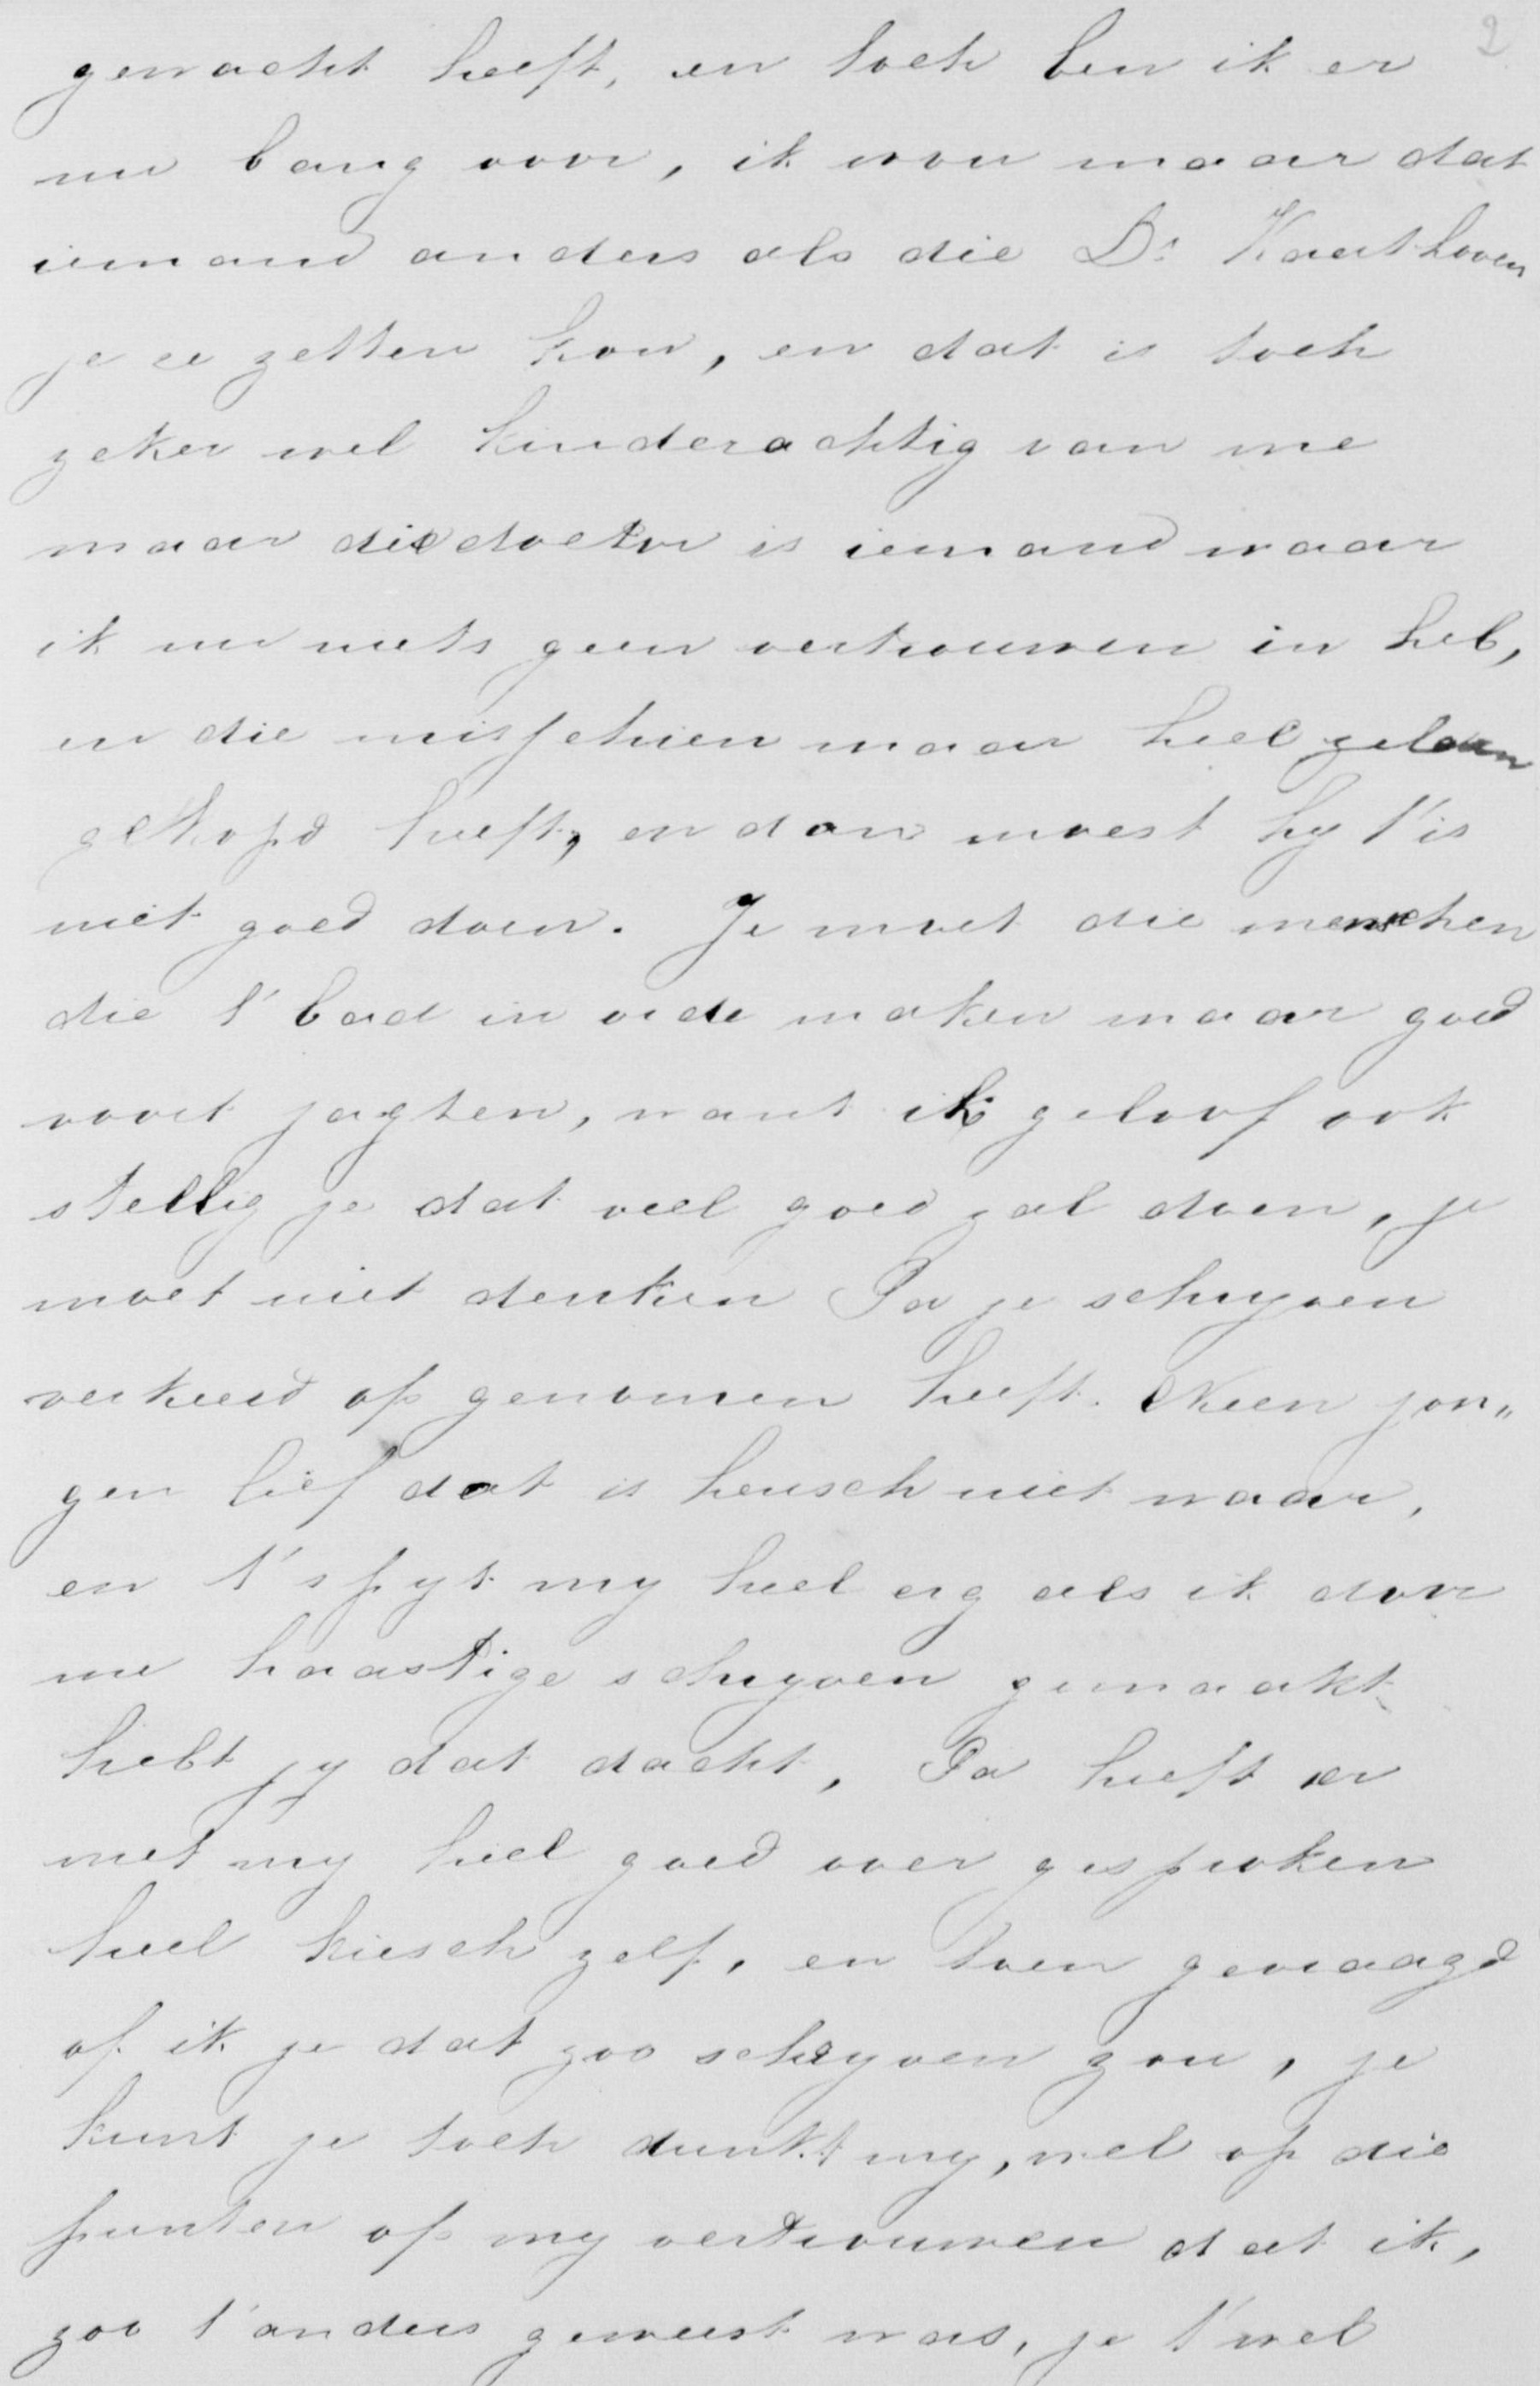 2
gewacht heeft, en toch ben ik er
nu bang voor, ik wou maar dat
iemand anders als die Dr Kaathoven
je ze zetten kon, en dat is toch
zeker wel kinderachtig van me
maar die doctor is iemand waar
ik nu niets geen vertrouwen in heb,
en die misschien maar heel zelden
gekopd heeft, en dan moest hy t'is
niet goed doen. Je moet die menschen
die t' bad in orde maken maar goed
voort jagten, want ik geloof ook
stellig je dat veel goed zal doen, je
moet niet denken Pa je schryven
verkeerd op genomen heeft. Neen jon„
gen lief dat is heusch niet waar,
en t'spyt my heel erg als ik door
me haastige schryven gemaakt
hebt jy dat dacht, Pa heeft er
met my heel goed over gesproken
heel kiesch zelf, en toen gevraagd
of ik je dat zoo schryven zou, je
kunt je toch dunkt my, wel op die
punten op my vertrouwen dat ik,
zoo t'anders geweest was, je t'wel